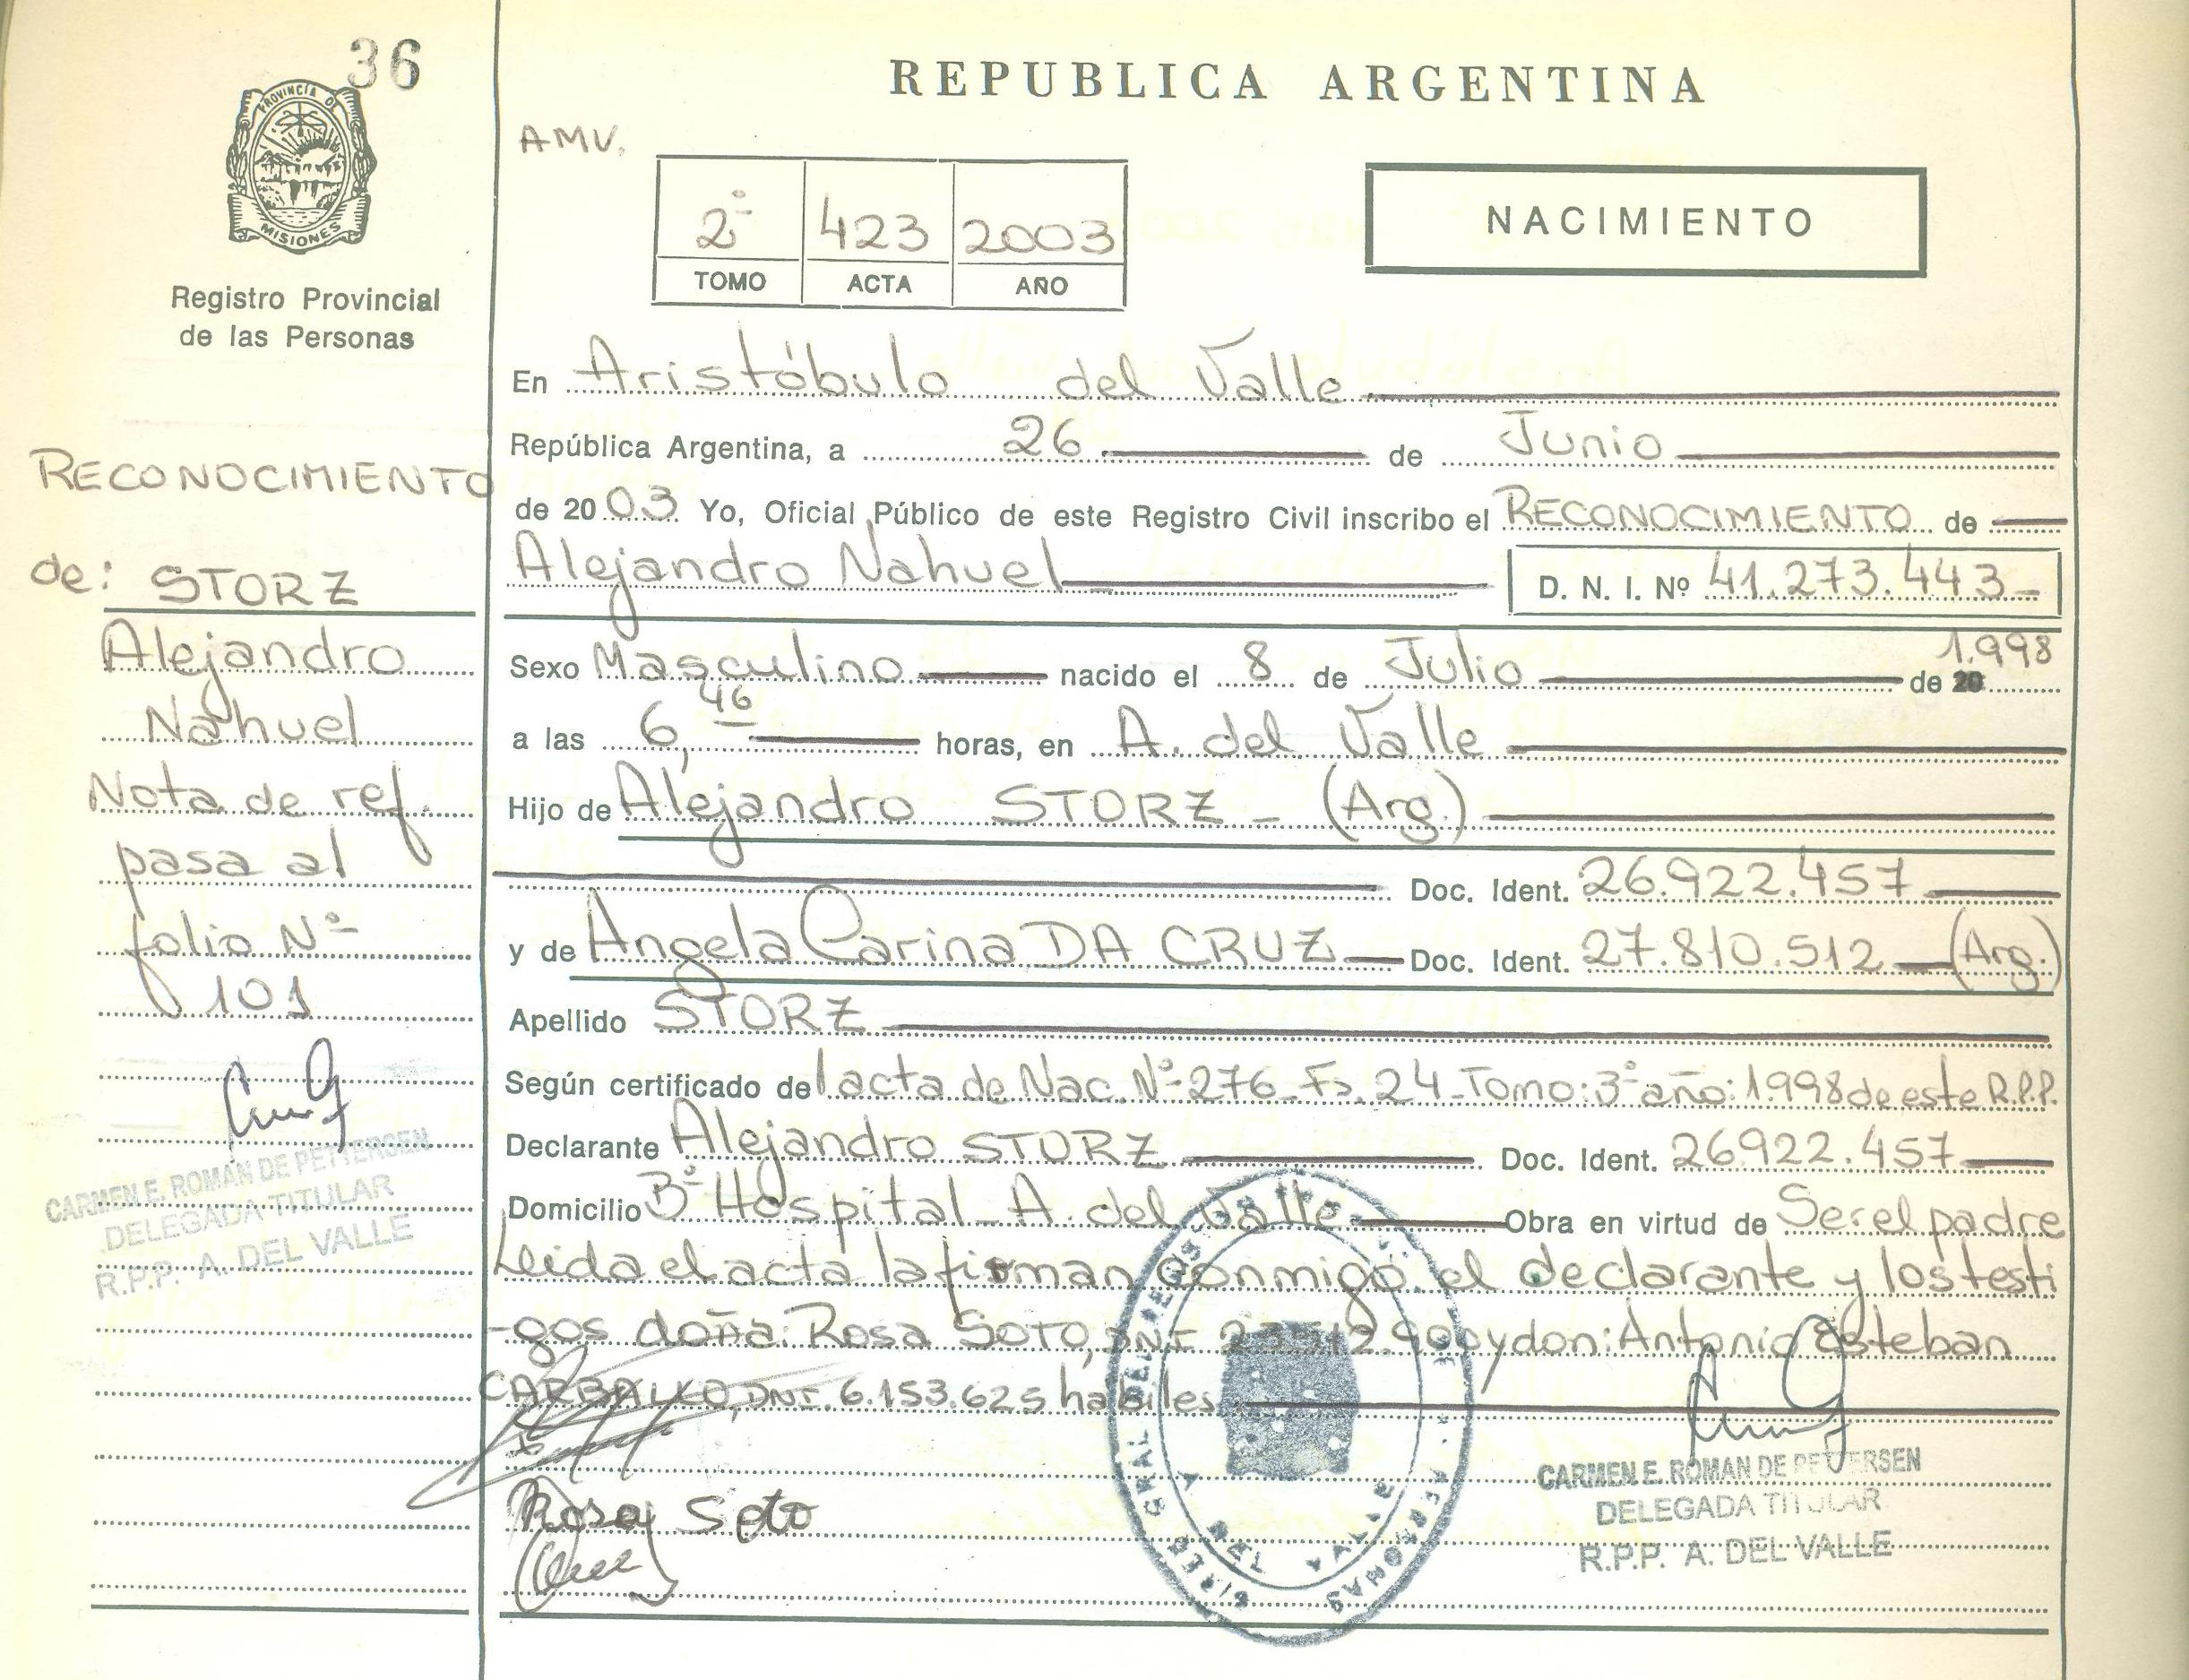 36
PROVINCIA DE
MISIONES
Registro Provincial
de las Personas
RECONOCIMIENTO
de: STORZ
Alejandro
Nahuel
Nota de ref.
pasa al
folio Nº
101
CARMEN E. ROMAN DE PETTERSEN
DELEGADA TITULAR
R.P.P. A. DEL VALLE
REPUBLICA ARGENTINA
AMV.
2º 423 2003
TOMO ACTA AÑO
NACIMIENTO
En Aristóbulo del Valle
República Argentina, a 26 de Junio
de 2003 Yo, Oficial Público de este Registro Civil inscribo el RECONOCIMIENTO de
Alejandro Nahuel D. N. I. Nº 41.273.443
Sexo Masculino nacido el 8 de Julio de 20 1.998
a las 6,46 horas, en A. del Valle
Hijo de Alejandro STORZ - (Arg.)
Doc. Ident. 26.922.457
y de Angela Carina DA CRUZ Doc. Ident. 27.810.512 (Arg.)
Apellido STORZ
Según certificado del acta de Nac. Nº 276 Fs. 24 Tomo: 3º año: 1.998 de este R.P.P.
Declarante Alejandro STORZ Doc. Ident. 26922.457
Domicilio Bº Hospital - A. del Valle Obra en virtud de Ser el padre
Leida el acta la firman conmigo el declarante y los testi
-gos doña: Rosa SOTO, DNI y don: Antonio Esteban
CARBALLO, DNI. 6.153.625 habiles
Rosa Soto
CARMEN E. ROMAN DE PETTERSEN
DELEGADA TITULAR
R.P.P. A. DEL VALLE